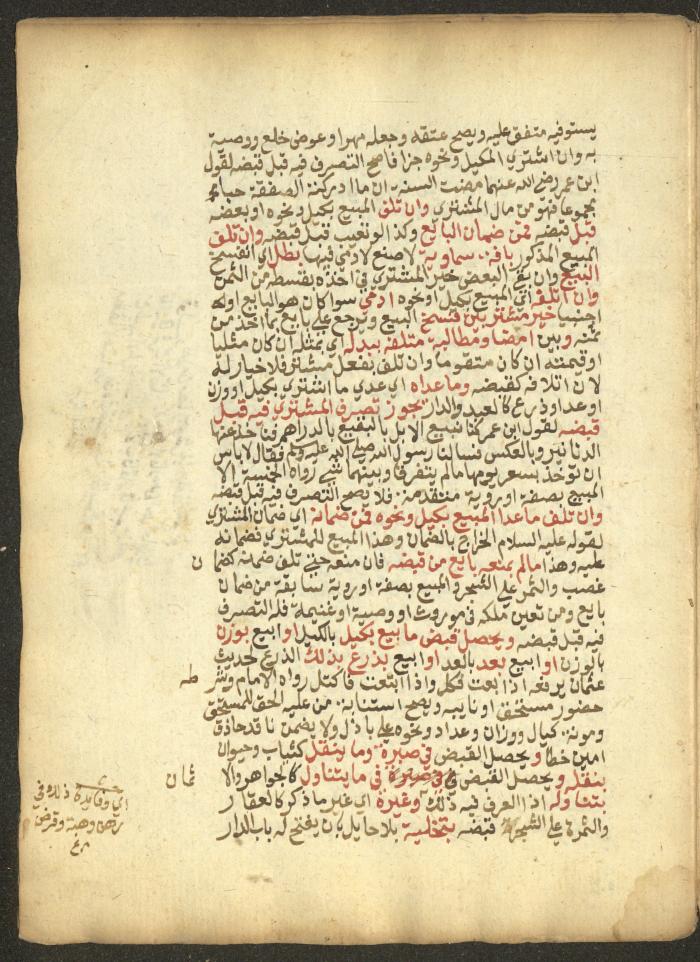 يستوفيه متفق عليه ويصح عتقه وجعله مهرا وعوض خلع ووصية
به وان اشتري المكيل ونحوه جزافا صح التصرف فيه قبل قبضه لقول
ابن عمر رضي الله عنهما مضت السنة ان ما ادركته الصفقة حيا
مجموعا فهو من مال المشتري وان تلف المبيع بكيل ونحوه او بعضه
قبل قبضه فمن ضمان البايع وكذا لو تعيب قبل قبضه وان تلف
المبيع المذكور بافة سماوية لا صنع لادمي فيها بطل اي انفسخ
البيع وان بقي البعض خير المشتري في اخذه بقسطه من الثمن
وان اتلفه اي المبيع بكيل او نحوه ادمي سوا كان هو البايع او
اجنبيا خير مشتر بين فسخ البيع ويرجع علي بايع بما اخذ من
ثمنه وبين امضا ومطالبة متلفه ببدله اي بمثله ان كان مثليا
او قيمته ان كان متقوما وان تلف بفعل مشتر فلا خيار له
لان اتلافه كقبضه وما عداه اي عدي ما اشتري بكيل او وزن
او عد او ذرع كالعبد والدار يجوز تصرف المشتري فيه قبل
قبضه لقول ابن عمر كنا نبيع الابل بالبقيع بالدراهم فناخذ عنها
الدنانير وبالعكس فسالنا رسول الله صلي الله عليه وسلم فقال لا باس
ان تؤخذ بسعر يومها مالم يتفرقا وبينهما شي رواه الخمسة الا
المبيع بصفة او روية متقدمة فلا يصح التصرف فيه قبل قبضه
وان تلف ما عدا المبيع بكيل ونحوه فمن ضمانه اي ضمان المشتري
لقوله عليه السلام الخراج بالضمان وهذا المبيع للمشتري فضمانه
عليه وهذا مالم يمنعه بايع من قبضه فان منعه حتي تلف ضمنه كضمان
غصب والثمر علي الشجر والمبيع بصفة او روية سابقة من ضمان
بايع ومن تعين ملكه في موروث او وصية او غنيمة فله التصرف
فيه قبل قبضه ويحصل قبض ما بيع بكيل بالكيل او ابيع بوزن
بالوزن او ابيع بعد بالعد او ابيع بذرع بذلك الذرع لحديث
عثمان يرفعه اذا بعت فكل واذا ابتعت فاكتل رواه الامام وشرطه
حضور مستحق او نايبه ويصح استنابة من عليه الحق للمستحق
ومونة كيال ووزان وعداد ونحوه علي باذل ولا يضمن ناقد حاذق
امين خطا ويحصل القبض في صبرة وما ينقل كثياب وحيوان
بنقله ويحصل القبض في ما يتناول كالجواهر والاثمان
بتناوله اذ العرف فيه ذلك وغيره اي غير ما ذكر كالعقار
والثمرة علي الشجر قبضه بتخلية بلا حايل بان يفتح له باب الدار
اي وفايدة ذلك في
رهن وهبة وقرض